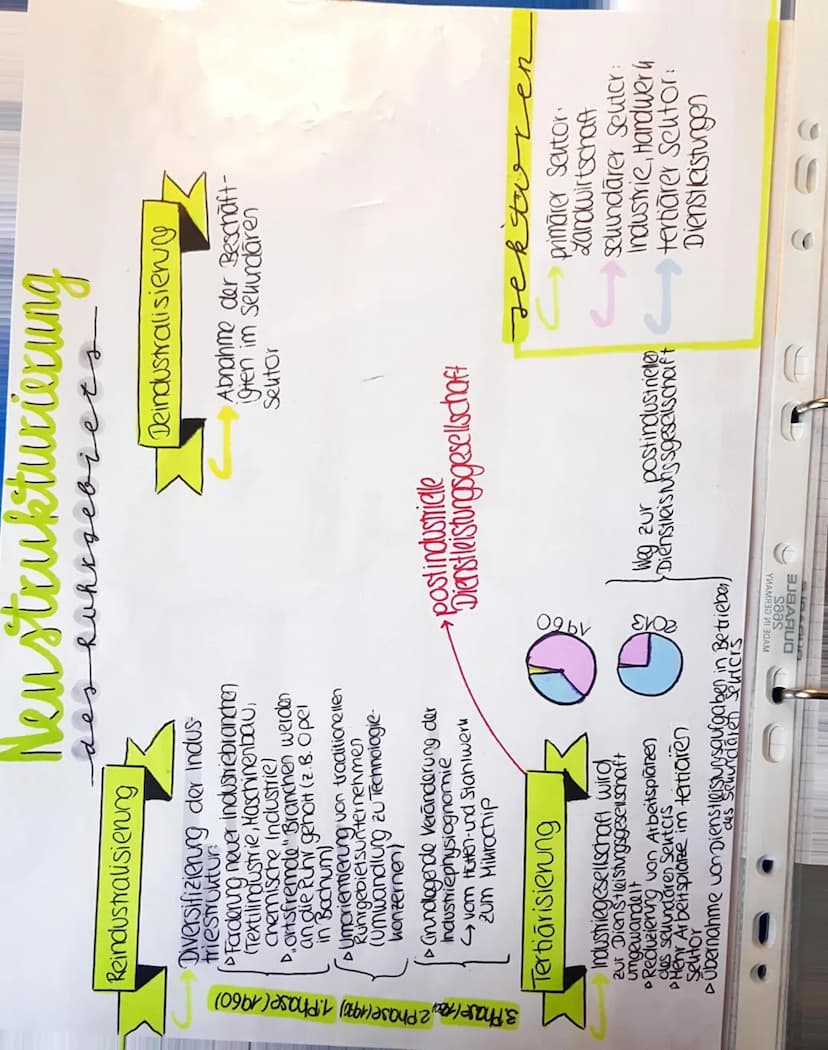 Neustrukturierung
des Ruhrgebiets
Reindustrialisierung
Diversifizierung der Indus-
triestruktur:
▹ Förderung neuer Industriebranchen
(Textilindustrie, Maschinenbau,
chemische Industrie)
▹ „ortsfremde" Branchen werden
an die Ruhr geholt (z.B. Opel
in Bochum)
▹ Umorientierung von traditionellen
Ruhrgebietsunternehmen
(Umwandlung zu Technologie-
konzernen)
▹ Grundlegende Veränderung der
Industriephysiognomie
↳ vom Hütten- und Stahlwerk
zum Mikrochip
1. Phase (1960)
2. Phase
3. Phase
Deindustralisierung
Abnahme der Beschäft-
igten im Sekundären
Sektor
Tertiärisierung
→ postindustrielle
Dienstleistungsgesellschaft
Industriegesellschaft wird
zur Dienstleistungsgesellschaft
umgewandelt
▹ Reduzierung von Arbeitsplätzen
des sekundären Sektors
▹ Mehr Arbeitsplätze im tertiären
Sektor
▹ Übernahme von Dienstleistungsaufgaben in Betrieben
des sekundären Sektors
1960
2013
Weg zur postindustriellen
Dienstleistungsgesellschaft
Sektoren
primärer Sektor:
Landwirtschaft
sekundärer Sektor:
Industrie, Handwerk
tertiärer Sektor:
Dienstleistungen
DURABLE
2662
MADE IN GERMANY